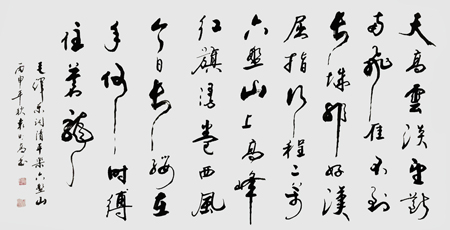 天高雲淡望斷
南飛雁不到
長城非好漢
屈指行程二萬
六盤山上高峰
紅旗漫卷西風
今日長纓在
手何時縛
住蒼龍
毛澤東詞清平樂六盤山
丙申年秋